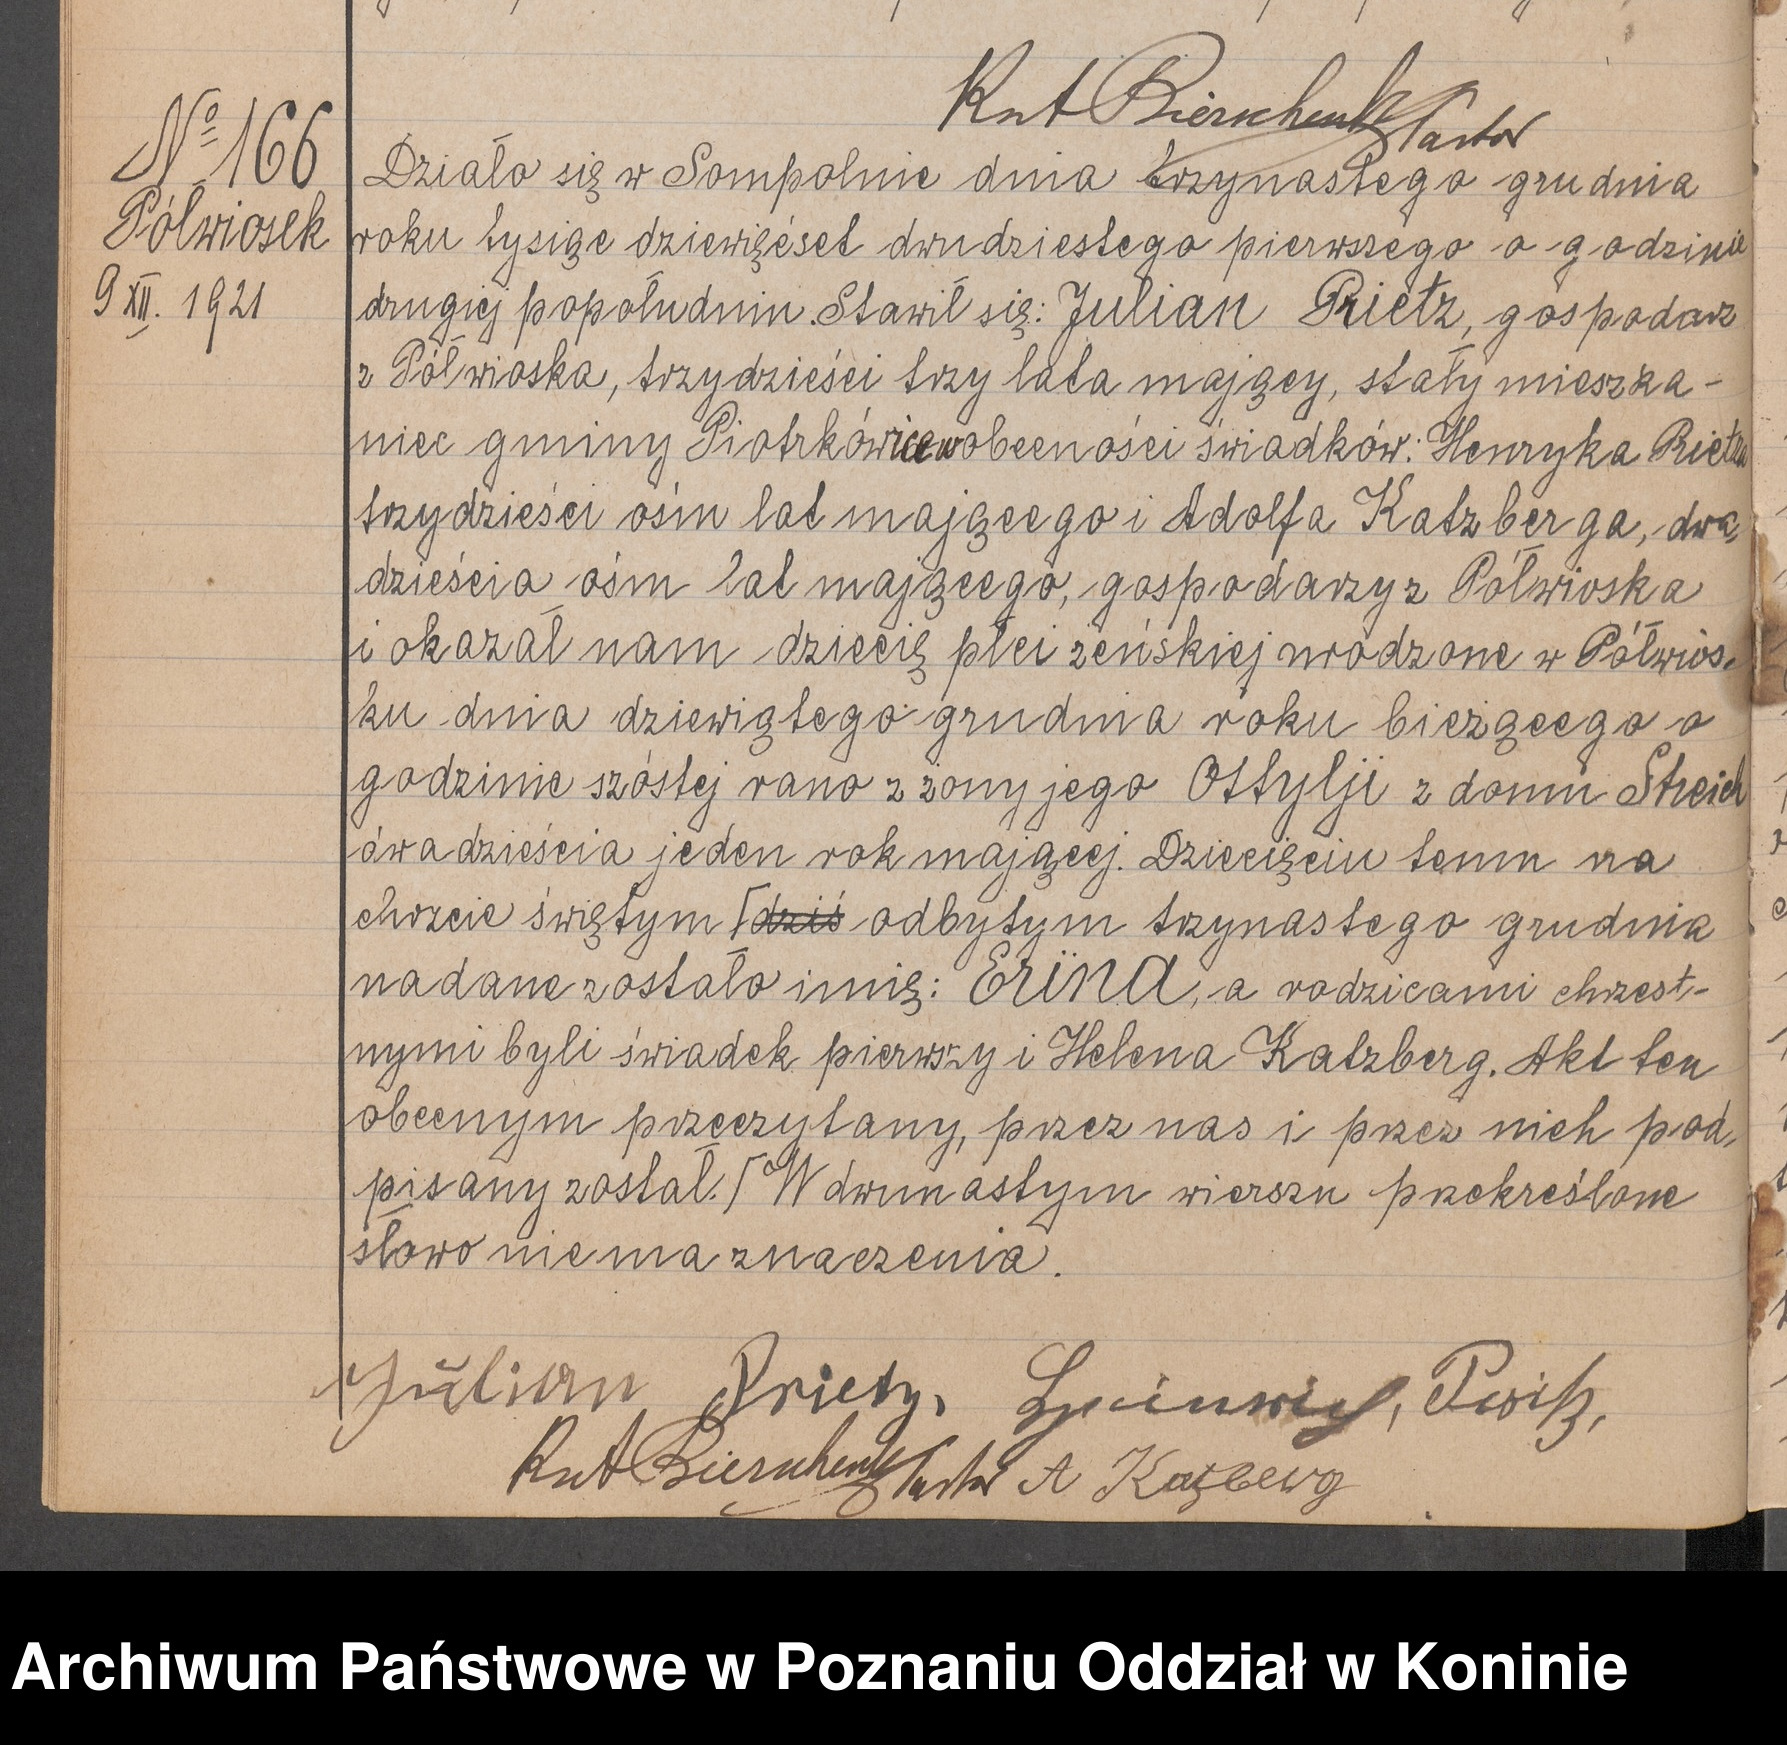 Knt Bierschenk Pastor
№ 166
Działo się w Sompolnie dnia trzynastego grudnia
Półwiosek
roku tysiąc dziewięćset dwudziestego pierwszego o godzinie
9 XII. 1921
drugiej popołudniu. Stawił się: Julian Prietz, gospodarz
z Półwioska, trzydzieści trzy lata mający, stały mieszka-
niec gminy Piotrkówice w obecności świadków: Henryka Rietza
trzydzieści ośm lat mającego i Adolfa Katzberga, dwa-
dzieścia ośm lat mającego, gospodarzy z Półwioska
i okazał nam dziecię płci żeńskiej urodzone w Półwios-
ku dnia dziewiątego grudnia roku bieżącego o
godzinie szóstej rano z żony jego Ottylji z domu Streich
dwadzieścia jeden rok mającej. Dziecięciu temu na
chrzcie świętym ⌈dziś odbytym trzynastego grudnia
nadane zostało imię: Erina, a rodzicami chrzest-
nymi byli świadek pierwszy i Helena Katzberg. Akt ten
obecnym przeczytany, przez nas i przez nich pod-
pisany został. ⌈W dwunastym wierszu przekreślone
słowo nie ma znaczenia.
Julian Prietz,
Knt Bierschenk Pastor A Kazberg
Archiwum Państwowe w Poznaniu Oddział w Koninie